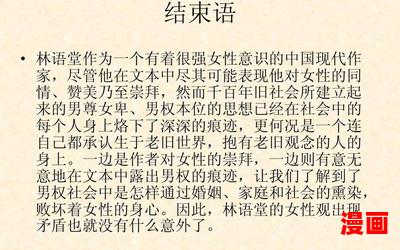 结束语
• 林语堂作为一个有着很强女性意识的中国现代作
家，尽管他在文本中尽其可能表现他对女性的同
情、赞美乃至崇拜，然而千百年旧社会所建立起
来的男尊女卑、男权本位的思想已经在社会中的
每个人身上烙下了深深的痕迹，更何况是一个连
自己都承认生于老旧世界，抱有老旧观念的人的
身上。一边是作者对女性的崇拜，一边则有意无
意地在文本中露出男权的痕迹，让我们了解到了
男权社会中是怎样通过婚姻、家庭和社会的熏染，
败坏着女性的身心。因此，林语堂的女性观出现
矛盾也就没有什么意外了。
漫画